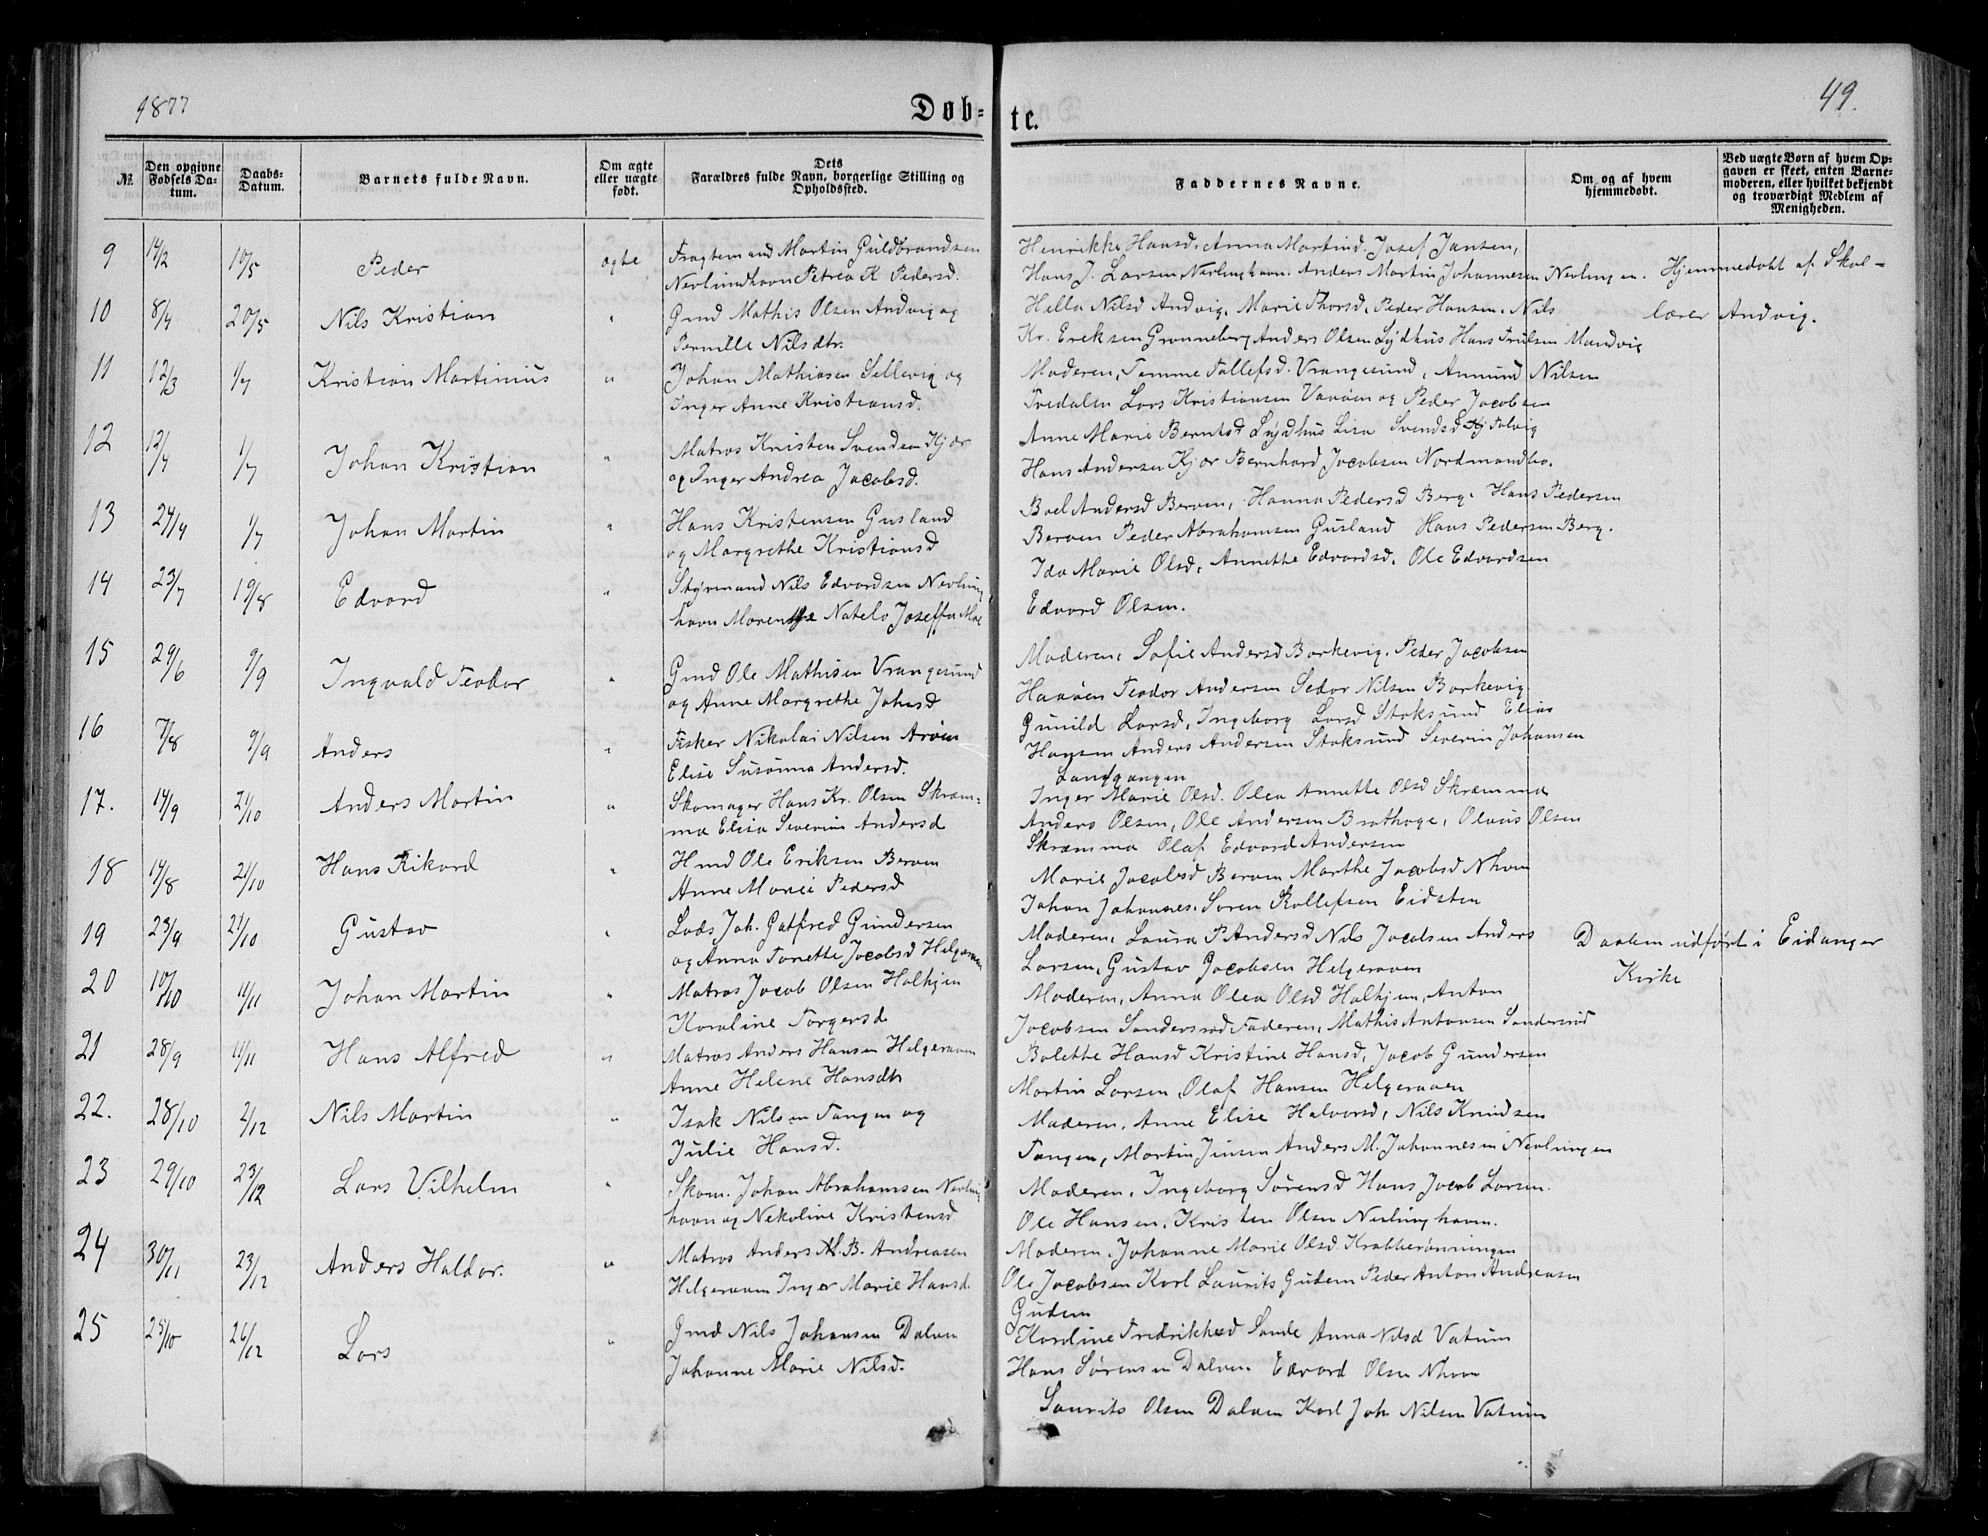 1877
Døb-
te.
49.
№.
Den opgivne Fødsels Datum.
Daabs-Datum.
Barnets fulde Navn.
Om ægte eller uægte født.
Dets Forældres fulde Navn, borgerlige Stilling og Opholdssted.
Faddernes Navne.
Om og af hvem hjemmedøbt.
Ved uægte Børn af hvem Opgaven er skeet, enten Barnemoderen, eller hvilket bekjendt og troværdigt Medlem af Menigheden.
9 14/2 10/5 Peder ægte Fragtemand Martin Guldbrandsen
Nevlunghavn Petrea K Pedersd.
Henrikke Hansd. Anna Martind. Josef Jansen,
Hans J. Larsen Nevlinghavn. Anders Martin Johannesen Nevlungen. Hjemmedøbt af Skol-
lærer Andvig.
10 8/4 20/5 Nils Kristian " Gmd Mathis Olsen Andvig og
Pernille Nilsdtr.
Hella Nilsd Andvig, Marie Thorsd, Peder Hansen. Nils
Kr. Eriksen Grønneberg Anders Olsen Lydhus Hans Trulsen Mandvig
11 12/3 1/7 Kristian Martinius " Johan Mathiasen Sillevig og
Inger Anne Kristiansd.
Moderen, Tomme Tollefsd. Vrangesund, Anmund Nilsen
Fredalen Lars Kristiansen Vaaøen og Peder Jacobsen
12 12/4 1/7 Johan Kristian " Matros Kristen Svendsen Kjær
og Inger Andrea Jacobsd.
Anne Marie Berntsd Lydhus Lisa Svendsd
Hans Andersen Kjær Bernhard Jacobsen Nordmandbo.
13 24/4 1/7 Johan Martin " Hans Kristensen Gusland
og Margrethe Kristiansd
Boel Andersd Berven, Hanna Pedersd Berg. Hans Pedersen
Berven Peder Abrahamsen Gusland Hans Pedersen Berg.
14 23/7 19/8 Edvard " Styrmand Nils Edvardsen Nevlung
havn Marenthe Natela Joseffa Moe
Ida Marie Olsd, Annethe Edvardsd, Ole Edvardsen
Edvard Olsen.
15 29/6 9/9 Ingvald Teodor " Gmd Ole Mathisen Vrangesund
og Anne Margrethe Johnsd
Moderen, Sofie Andersd Barkevig. Peder Jacobsen
Haaøen Teodor Andersen Sedor Nilsen Barkevig
16 7/8 9/9 Anders " Fisker Nikolai Nilsen Arøen
Elise Susanna Andersd.
Gunild Larsd, Ingeborg Larsd Stoksund Elias
Hansen Anders Andersen Stoksund Severin Johansen
Landgangen
17. 14/9 21/10 Anders Martin " Skomager Hans Kr. Olsen Skræm-
ma Elisa Severine Andersd
Inger Marie Olsd. Olea Annette Olsd Skræmma
Anders Olsen, Ole Andersen Brathage, Olaus Olsen
Skræmma Olaf Edvard Andersen
18 14/8 21/10 Hans Rikard " Hmd Ole Eriksen Berven
Anne Marie Pedersd
Marie Jacobsd Berven Marthe Jacobsd Nhavn
Johan Johannes. Søren Rollefsen Eidsten
19 23/9 21/10 Gustav " Lods Joh. Gotfred Gundersen
og Anna Tonette Jacobsd Helgeraaen
Moderen, Laura P Andersd Nils Jacobsen Anders
Larsen, Gustav Jacobsen Helgeraaen
Daaben udført i Eidanger
Kirke
20 10/10 11/11 Johan Martin " Matros Jacob Olsen Halhjem
Karoline Torgersd
Moderen, Anna Olea Olsd Halhjem, Anton
Jacobsen Sandersrød Faderen, Mathis Antonsen Sandersrød
21 28/9 11/11 Hans Alfred " Matros Anders Hansen Helgeraaen
Anne Helene Hansdtr
Bolethe Hansd Kristine Hansd, Jacob Gundersen
Martin Larsen, Olaf Hansen Helgeraaen
22. 28/10 2/12 Nils Martin " Isak Nilsen Tangen og
Julie Hansd.
Moderen. Anne Elise Halvorsd, Nils Knudsen
Tangen, Martin Jensen Anders M. Johannesen Nevlungen
23 29/10 23/12 Lars Vilhelm " Skom. Johan Abrahamsen Nevling
havn og Nekoline Kristensd
Moderen. Ingeborg Sørensd Hans Jacob Larsen.
Ole Hansen. Kristen Olsen Nevlinghavn.
24 30/11 23/12 Anders Haldor. " Matros Anders M. B. Andreasen
Helgeraaen Inger Marie Hansd.
Moderen. Johanne Marie Olsd Krabberønningen
Ole Jacobsen Karl Laurits Gudem Peder Anton Andreasen
Gudem
25 25/10 26/12 Lars " Gmd Nils Johansen Dalen
Johanne Marie Nilsd.
Karoline Fredrikhed Sande Anna Nilsd Vatum
Hans Sørensen Dalen. Edvard Olsen Nhavn
Laurits Olsen Dalen Karl Joh Nilsen Vatum